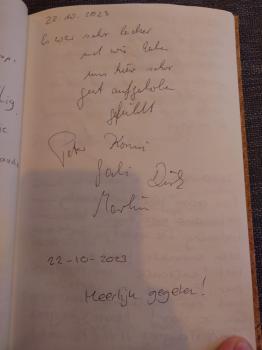 22.10.2023
Es war sehr lecker
und wir haben
uns hier sehr
gut aufgehoben
gefühlt
Peter Konni
Gabi Dirk
Martin
22-10-2023
Heerlijk gegeten!